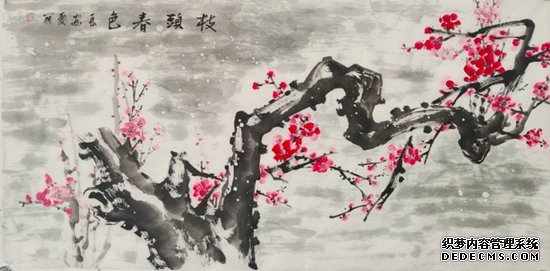 枝頭春色
织梦内容管理系统
DEDECMS.COM